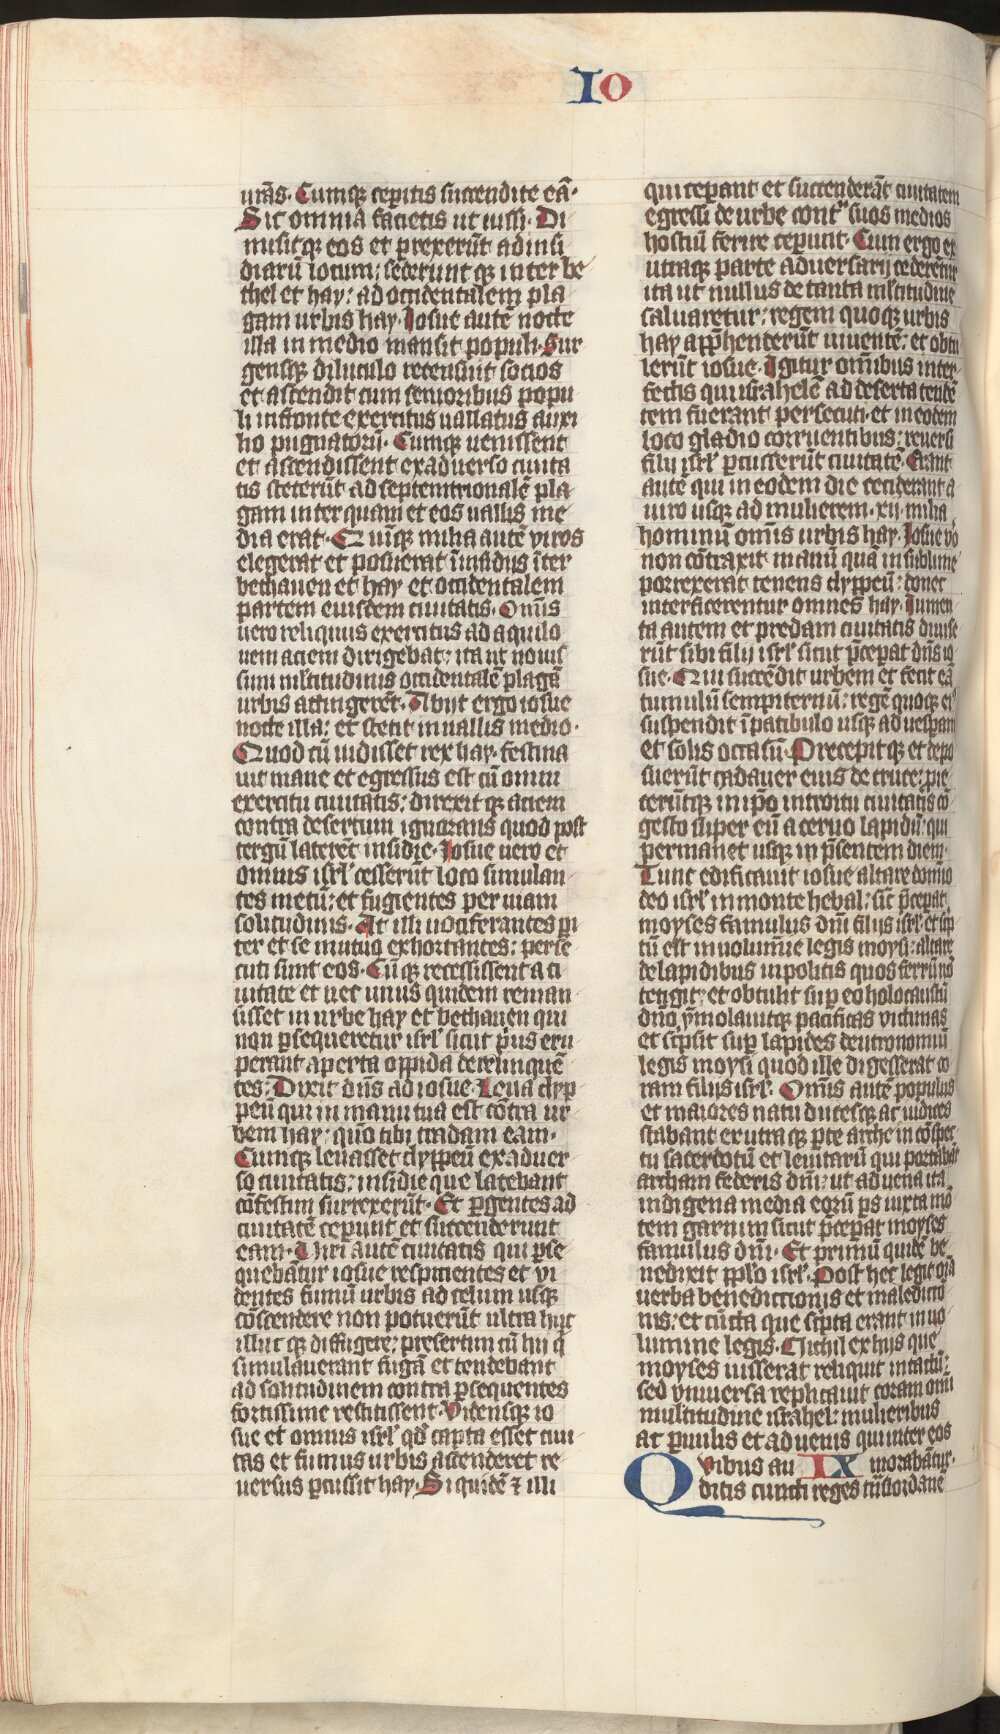 IO
uras. Cumq; ceperitis succendite eā.
Sic omnia facietis ut iussi. Di
misitq; eos et prexerūt ad insi
diarū locum; sederuntq; inter be
thel et hay: ad occidentalem pla
gam urbis hay. Iosue autē nocte
illa in medio mansit populi. Sur
gensq; diluculo recensuit socios
et ascendit cum senioribus popu
li in fronte exercitus uallatus auxi
lio pugnatorū. Cumq; uenissent
et ascendissent ex aduerso ciuita
tis steterūt ad septemtrionalē pla
gam inter quam et eos uallis me
dia erat. Quīq; milia autē viros
elegerat et posuerat ī insidiis īter
bethauen et hay et occidentalem
partem eiusdem ciuitatis. Omīs
uero reliquus exercitus ad aquilo
nem aciem dirigebat: ita ut nouis
simi mltitudinis occidentalē plagā
urbis attingerēt. Abiit ergo iosue
nocte illa: et stetit in uallis medio.
Quod cū uidisset rex hay. festina
uit mane et egressus est cū omni
exercitu ciuitatis: direxitq; aciem
contra desertum ignorans quod post
tergū laterēt insidie. Iosue uero et
omnis isrl' cesserūt loco simulan
tes metū: et fugientes per uiam
solitudinis. At illi uociferantes pi
ter et se mutuo exhortantes: perse
cuti sunt eos. Cūq; recessissent a ci
uitate et nec unus quidem reman
sisset in urbe hay et bethauen qui
non psequeretur isrl' sicut pus eru
perant aperta oppida derelinquē
tes: Dixit dn̄s ad iosue. Leua clyp
peū qui in manu tua est cōtra ur
bem hay: quō tibi tradam eam.
Cumq; leuasset clyppeū ex aduer
so ciuitatis: insidie que latebant
cōfestim surrexerūt. Et pgentes ad
ciuitatē ceperunt et succenderunt
eam. Uiri autē ciuitatis qui pse
quebātur iosue respicientes et vi
dentes fumū urbis ad celum usq;
cōscendere non potuerūt ultra huc
illucq; diffugere: presertim cū hii q̄
simulauerant fugā et tendebant
ad solitudinem contra psequentes
fortissime restitissent. Vidensq; io
sue et omnis isrl' qd̄ capta esset ciui
tas et fumus urbis ascenderet re
uersus pcussit hay. Siquidē ⁊ illi
qui ceperant et succenderāt ciuitatem
egressi de urbe cont'' suos medios
hostiū ferire ceperunt. Cum ergo ex
utraq; parte aduersarij cederentur
ita ut nullus de tanta mltitudine
saluaretur: regem quoq; urbis
hay apphenderūt uiuentē: et obtu
lerūt iosue. Igitur omībus inter
fectis qui israhelē ad deserta tendē
tem fuerant persecuti. et in eodem
loco gladio corruentibus: reuersi
filii isrl' pcusserūt ciuitatē. Erant
autē qui in eodem die ceciderant a
uiro usq; ad mulierem .xii. milia
hominū omīs urbis hay. Iosue vo
non cōtraxit manū quā in sublime
porrexerat tenens clyppeū: donec
interficerentur omnes hay. Iumen
ta autem et predam ciuitatis diuise
rūt sibi filii isrl' sicut pcepat dn̄s io
sue. Qui succēdit urbem et fecit eā
tumulū sempiternū: regē quoq; ei'
suspendit ī patibulo usq; ad uespam
et solis occasū. Precepitq; et depo
suerūt cadauer eius de cruce: pie
cerūtq; in ipō introitu ciuitatis cō
gesto super eū aceruo lapidū: qui
permanet usq; in psentem diem.
Tunc edificauit iosue altare domīo
deo isrl' in monte hebal: sic pcepat
moyses famulus dn̄i filijs isrl'. et scp
tū est in volumīe legis moysi: altare
de lapidibus inpolitis quos ferrū nō
tetigit: et obtulit sup eo holocaustū
dn̄o ymolauitq; pacificas victimas
et scpsit sup lapides deutronomiū
legis moysi quod ille digesserat co
ram filijs isrl'. Omīs autē populus
et maiores natu ducesq; ac iudices
stabant ex utraq; pte arche in cōspec
tu sacerdotū et leuitarū qui portabāt
archam federis dn̄i: ut aduena ita
indigena media eorū ps iuxta mō
tem garizim sicut pcepat moyses
famulus dn̄i. Et primū quidē be
nedixit pplo isrl'. Post hec legit oīa
uerba benedictionis et maledictio
nis: et cūcta que scpta erant in uo
lumine legis. Nichil ex hijs que
moyses iusserat reliquit intactū:
sed vniuersa replicauit coram omī
multitudine israhel: mulieribus
ac puulis et aduenis qui inter eos
morabātur.
IX
Quibus au
ditis cuncti reges